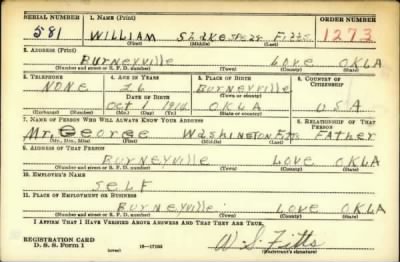 SERIAL NUMBER 1. NAME (Print) ORDER NUMBER
581 WILLIAM Shakespear Fitts 1273
(First) (Middle) (Last)
2. ADDRESS (Print)
Burneyville Love OKLA
(Number and street or R. F. D. number) (Town) (County) (State)
3. TELEPHONE 4. AGE IN YEARS 5. PLACE OF BIRTH 6. COUNTRY OF CITIZENSHIP
NONE 26 Burneyville
DATE OF BIRTH (Town or county)
Oct 1 1914 OKLA USA
(Exchange) (Number) (Mo.) (Day) (Yr.) (State or country)
7. NAME OF PERSON WHO WILL ALWAYS KNOW YOUR ADDRESS 8. RELATIONSHIP OF THAT PERSON
Mr. George Washington Fitts Father
(Mr., Mrs., Miss) (First) (Middle) (Last)
9. ADDRESS OF THAT PERSON
Burneyville Love OKLA
(Number and street or R. F. D. number) (Town) (County) (State)
10. EMPLOYER'S NAME
SELF
11. PLACE OF EMPLOYMENT OR BUSINESS
Burneyville Love OKLA
(Number and street or R. F. D. number) (Town) (County) (State)
I AFFIRM THAT I HAVE VERIFIED ABOVE ANSWERS AND THAT THEY ARE TRUE.
REGISTRATION CARD
D. S. S. Form 1 (over) W. S. Fitts
(Registrant's signature)